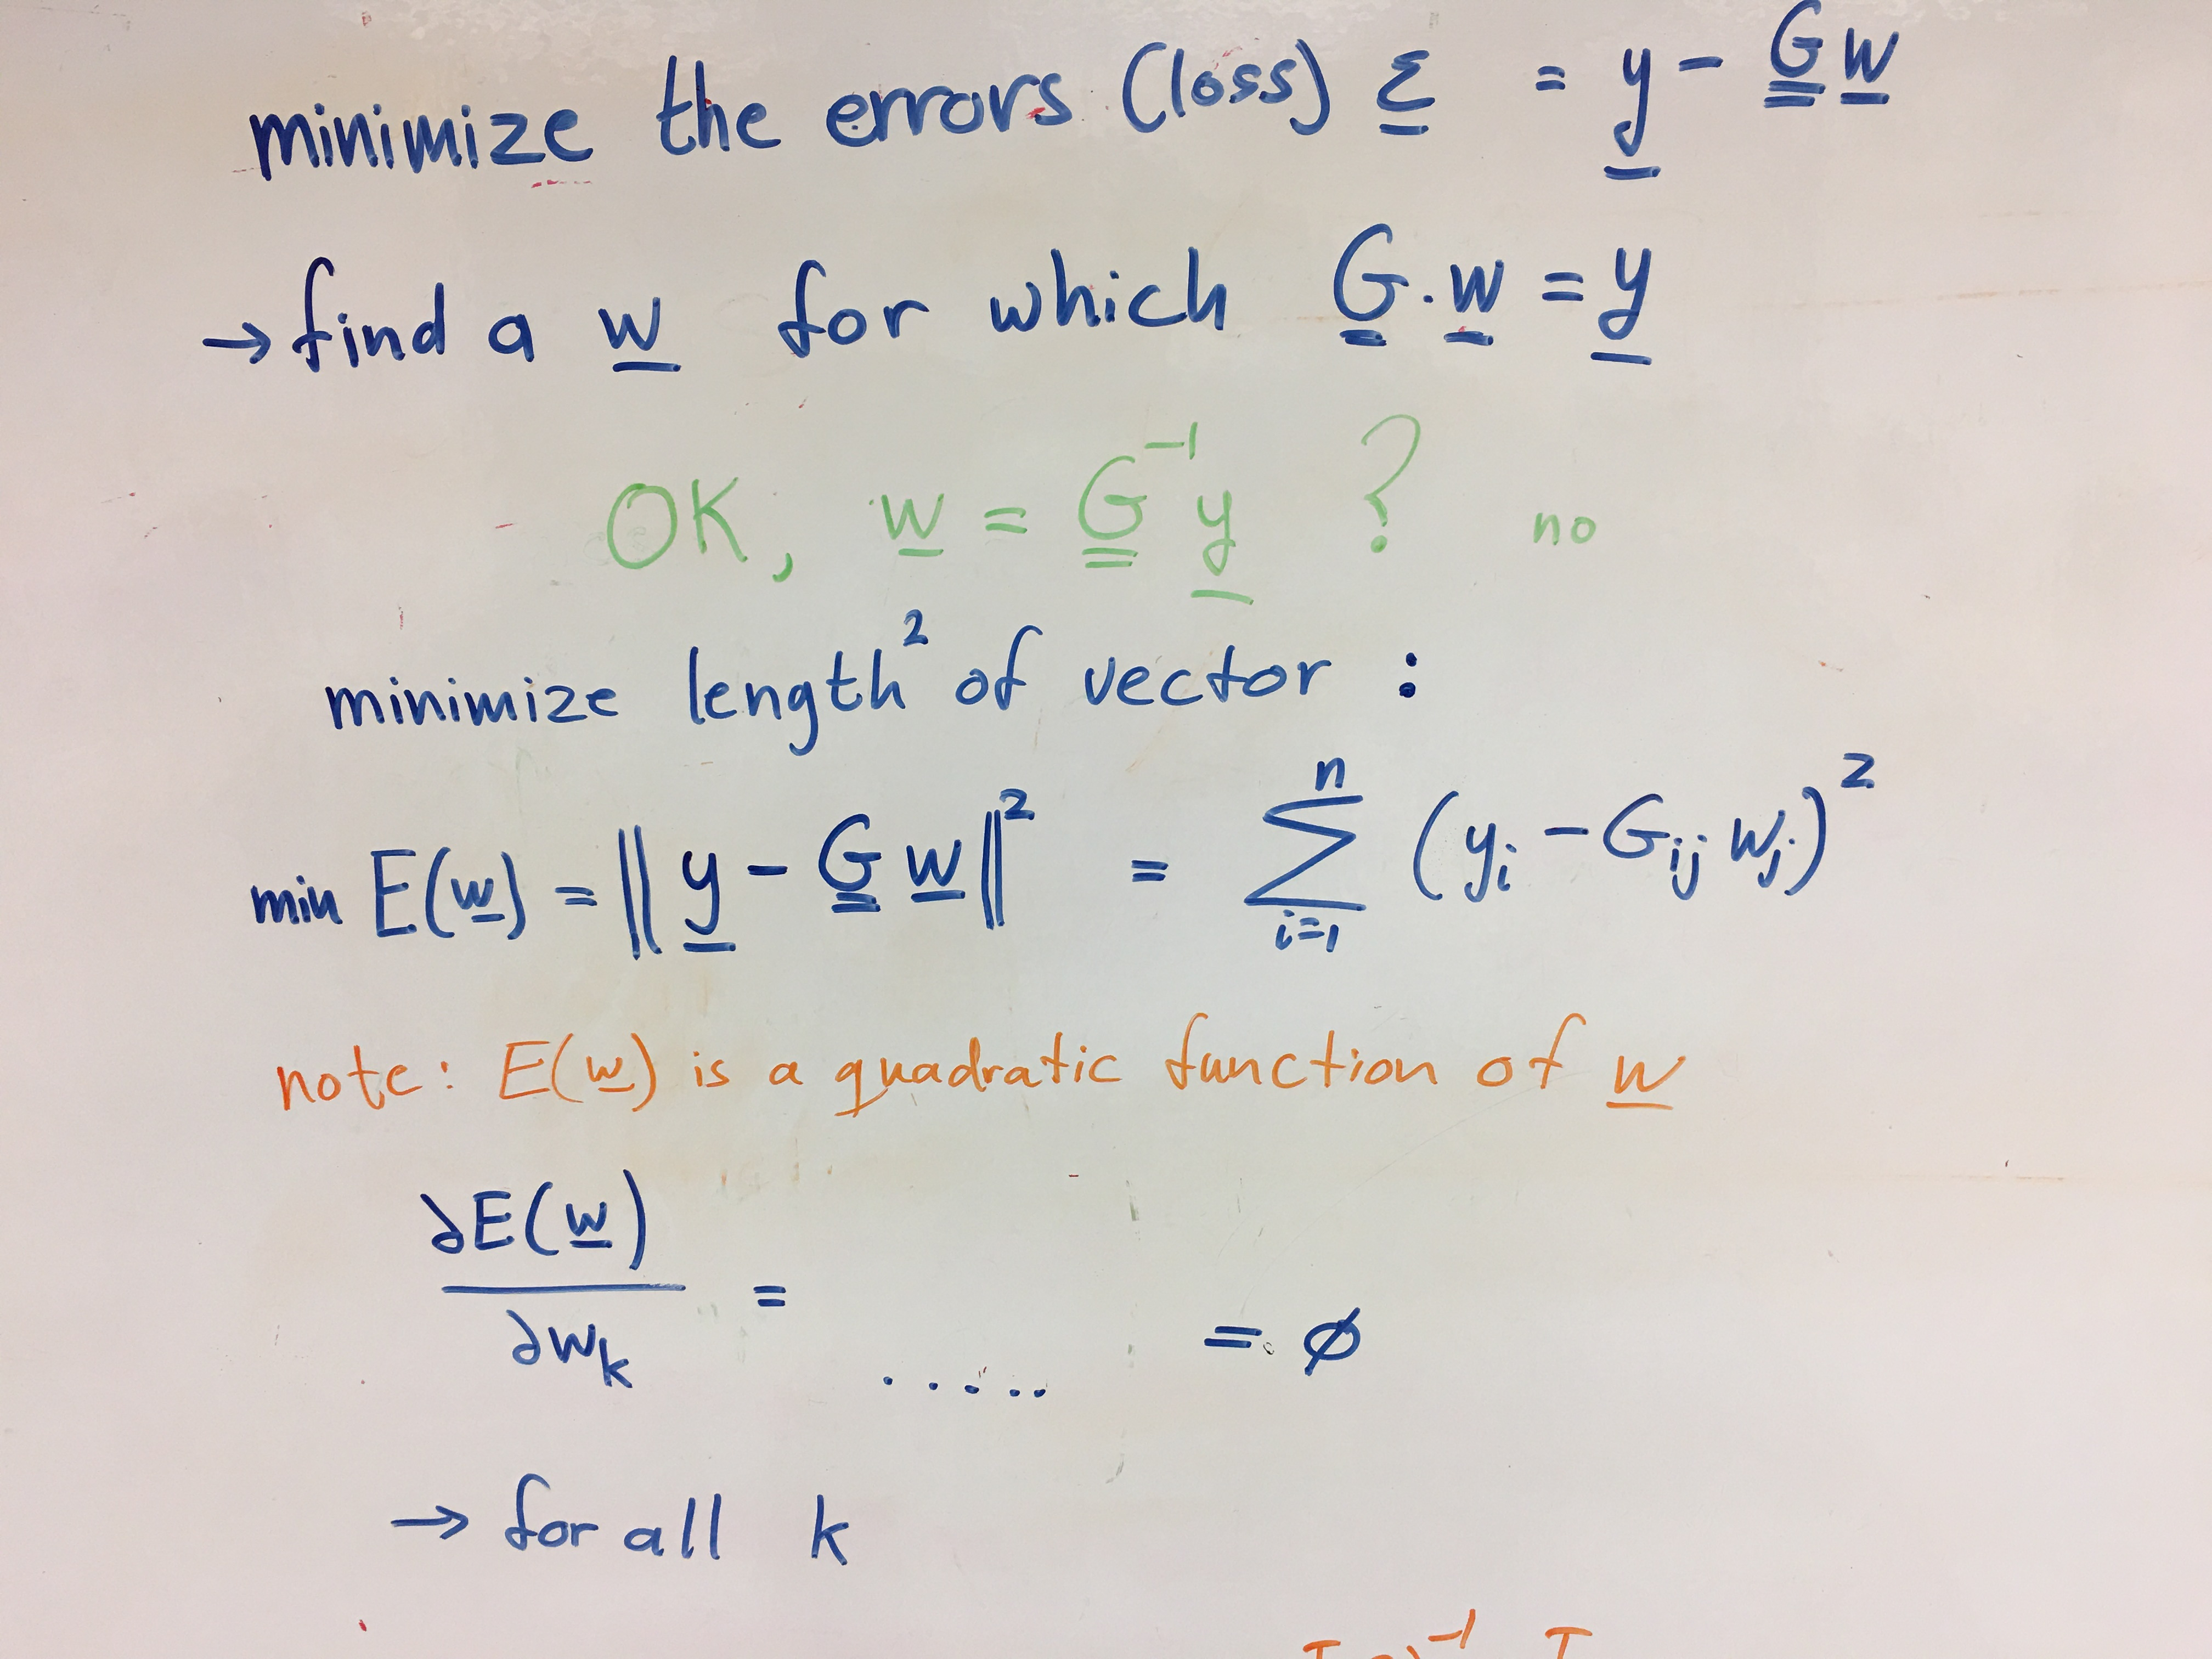 minimize the errors (loss) ε = y - G w
→ find a w for which G · w = y
OK, w = G⁻¹ y ? no
minimize length² of vector :
min E(w) = ‖ y - G w ‖² = ∑ⁿᵢ₌₁ (yᵢ - Gᵢⱼ wⱼ)²
note: E(w) is a quadratic function of w
∂E(w)
∂wₖ
= ..... = ∅
→ for all k